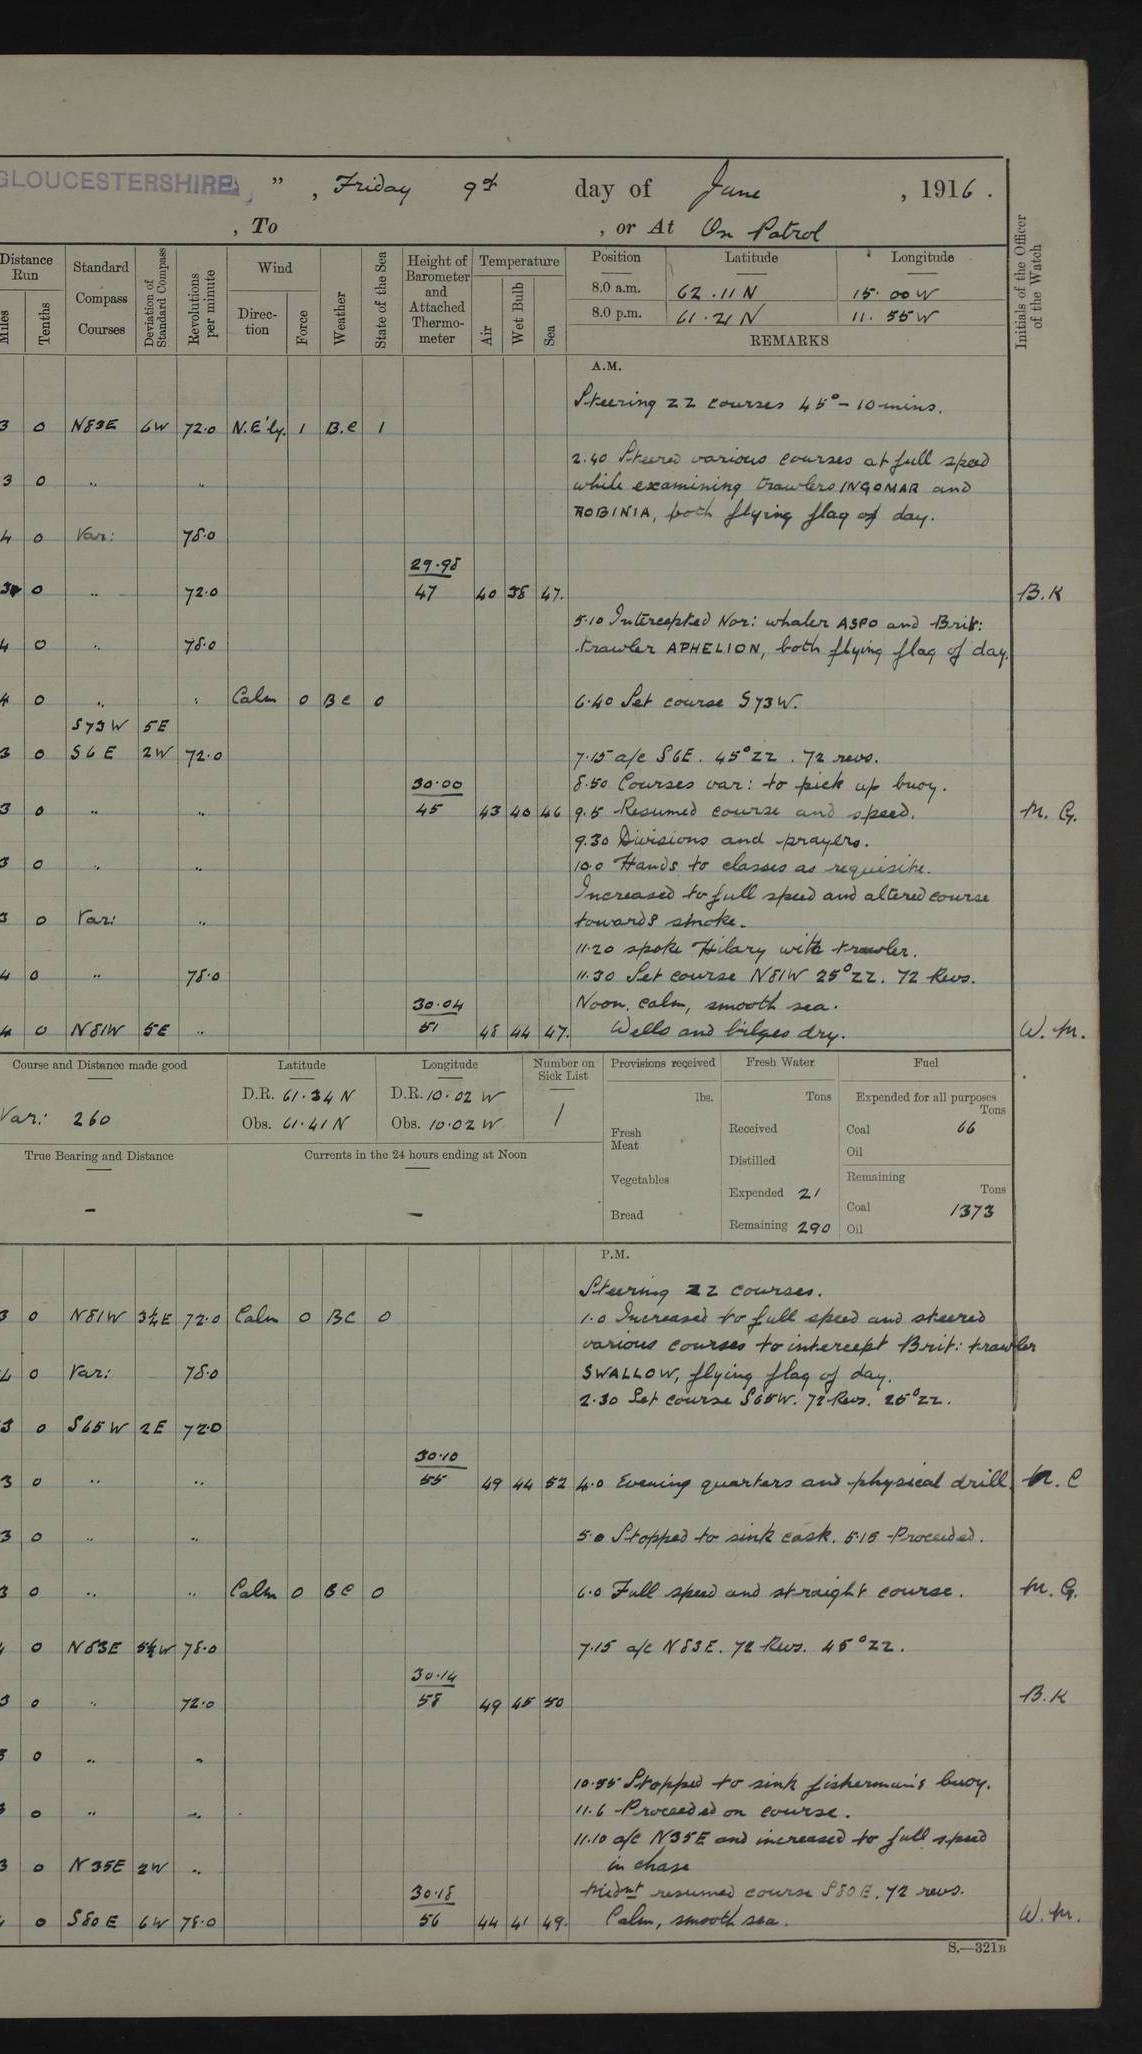 GLOUCESTERSHIRE " , Friday 9th day of June , 1916 .
, To , or At On Patrol
Distance Run Standard Compass Courses Deviation of Standard Compass Revolutions per minute Wind Weather State of the Sea Height of Barometer and Attached Thermometer Temperature Position Latitude Longitude Initials of the Officer of the Watch
Miles Tenths Direction Force Air Wet Bulb Sea
8.0 a.m. 62.11 N 15.00 W
8.0 p.m. 61.21 N 11.55 W
REMARKS
A.M.
Steering ZZ courses 45° - 10 mins.
3 0 N83E 6W 72.0 N.E'ly. 1 B.C 1
2.40 Steered various courses at full speed
3 0 " " while examining trawlers INGOMAR and
ROBINIA, both flying flag of day.
4 0 Var: 78.0
29.98
0 " 72.0 47 40 38 47. B.K
5.10 Intercepted Nor: whaler ASPO and Brit:
4 0 " 78.0 trawler APHELION, both flying flag of day.
4 0 " " Calm 0 BC 0 6.40 Set course S73W.
S73W 5E
3 0 S6E 2W 72.0 7.15 a/c S6E. 45° ZZ. 72 revs.
30.00 8.50 Courses var: to pick up buoy.
3 0 " " 45 43 40 46 9.5 Resumed course and speed. M. G.
9.30 Divisions and prayers.
3 0 " " 10.0 Hands to classes as requisite.
Increased to full speed and altered course
3 0 Var: " towards smoke.
11.20 spoke Hilary with trawler.
4 0 " 78.0 11.30 Set course N81W 25° ZZ. 72 Revs.
30.04 Noon. calm, smooth sea.
4 0 N81W 5E " 51 48 44 47. Wells and bilges dry. W. M.
Course and Distance made good Latitude Longitude Number on Sick List Provisions received Fresh Water Fuel
Var: 260 D.R. 61.34 N D.R. 10.02 W 1 lbs. Tons Expended for all purposes Tons
Obs. 61.41 N Obs. 10.02 W Fresh Meat Received Coal 66
Oil
True Bearing and Distance Currents in the 24 hours ending at Noon Distilled
Vegetables Remaining Tons
- - Expended 21 Coal 1373
Bread Remaining 290 Oil
P.M.
Steering ZZ courses.
3 0 N81W 3½E 72.0 Calm 0 BC 0 1.0 Increased to full speed and steered
various courses to intercept Brit: trawler
4 0 Var: 78.0 SWALLOW, flying flag of day.
2.30 Set course S65W. 72 Revs. 25° ZZ.
3 0 S65W 2E 72.0
30.10
3 0 " " 55 49 44 52 4.0 Evening quarters and physical drill C
3 0 " " 5.0 Stopped to sink cask. 5.15 Proceeded.
3 0 " " Calm 0 BC 0 6.0 Full speed and straight course. M. G.
0 N83E 5½W 78.0 7.15 a/c N83E. 72 Revs. 45° ZZ.
30.14
3 0 " 72.0 58 49 45 50 B.K
3 0 " "
10.55 Stopped to sink fisherman's buoy.
3 0 " " 11.6 Proceeded on course.
11.10 a/c N35E and increased to full speed
3 0 N35E 2W " in chase
30.18 Midnt resumed course S80E. 72 revs.
0 S80E 6W 78.0 56 44 41 49. Calm, smooth sea. W. M.
S.—321B